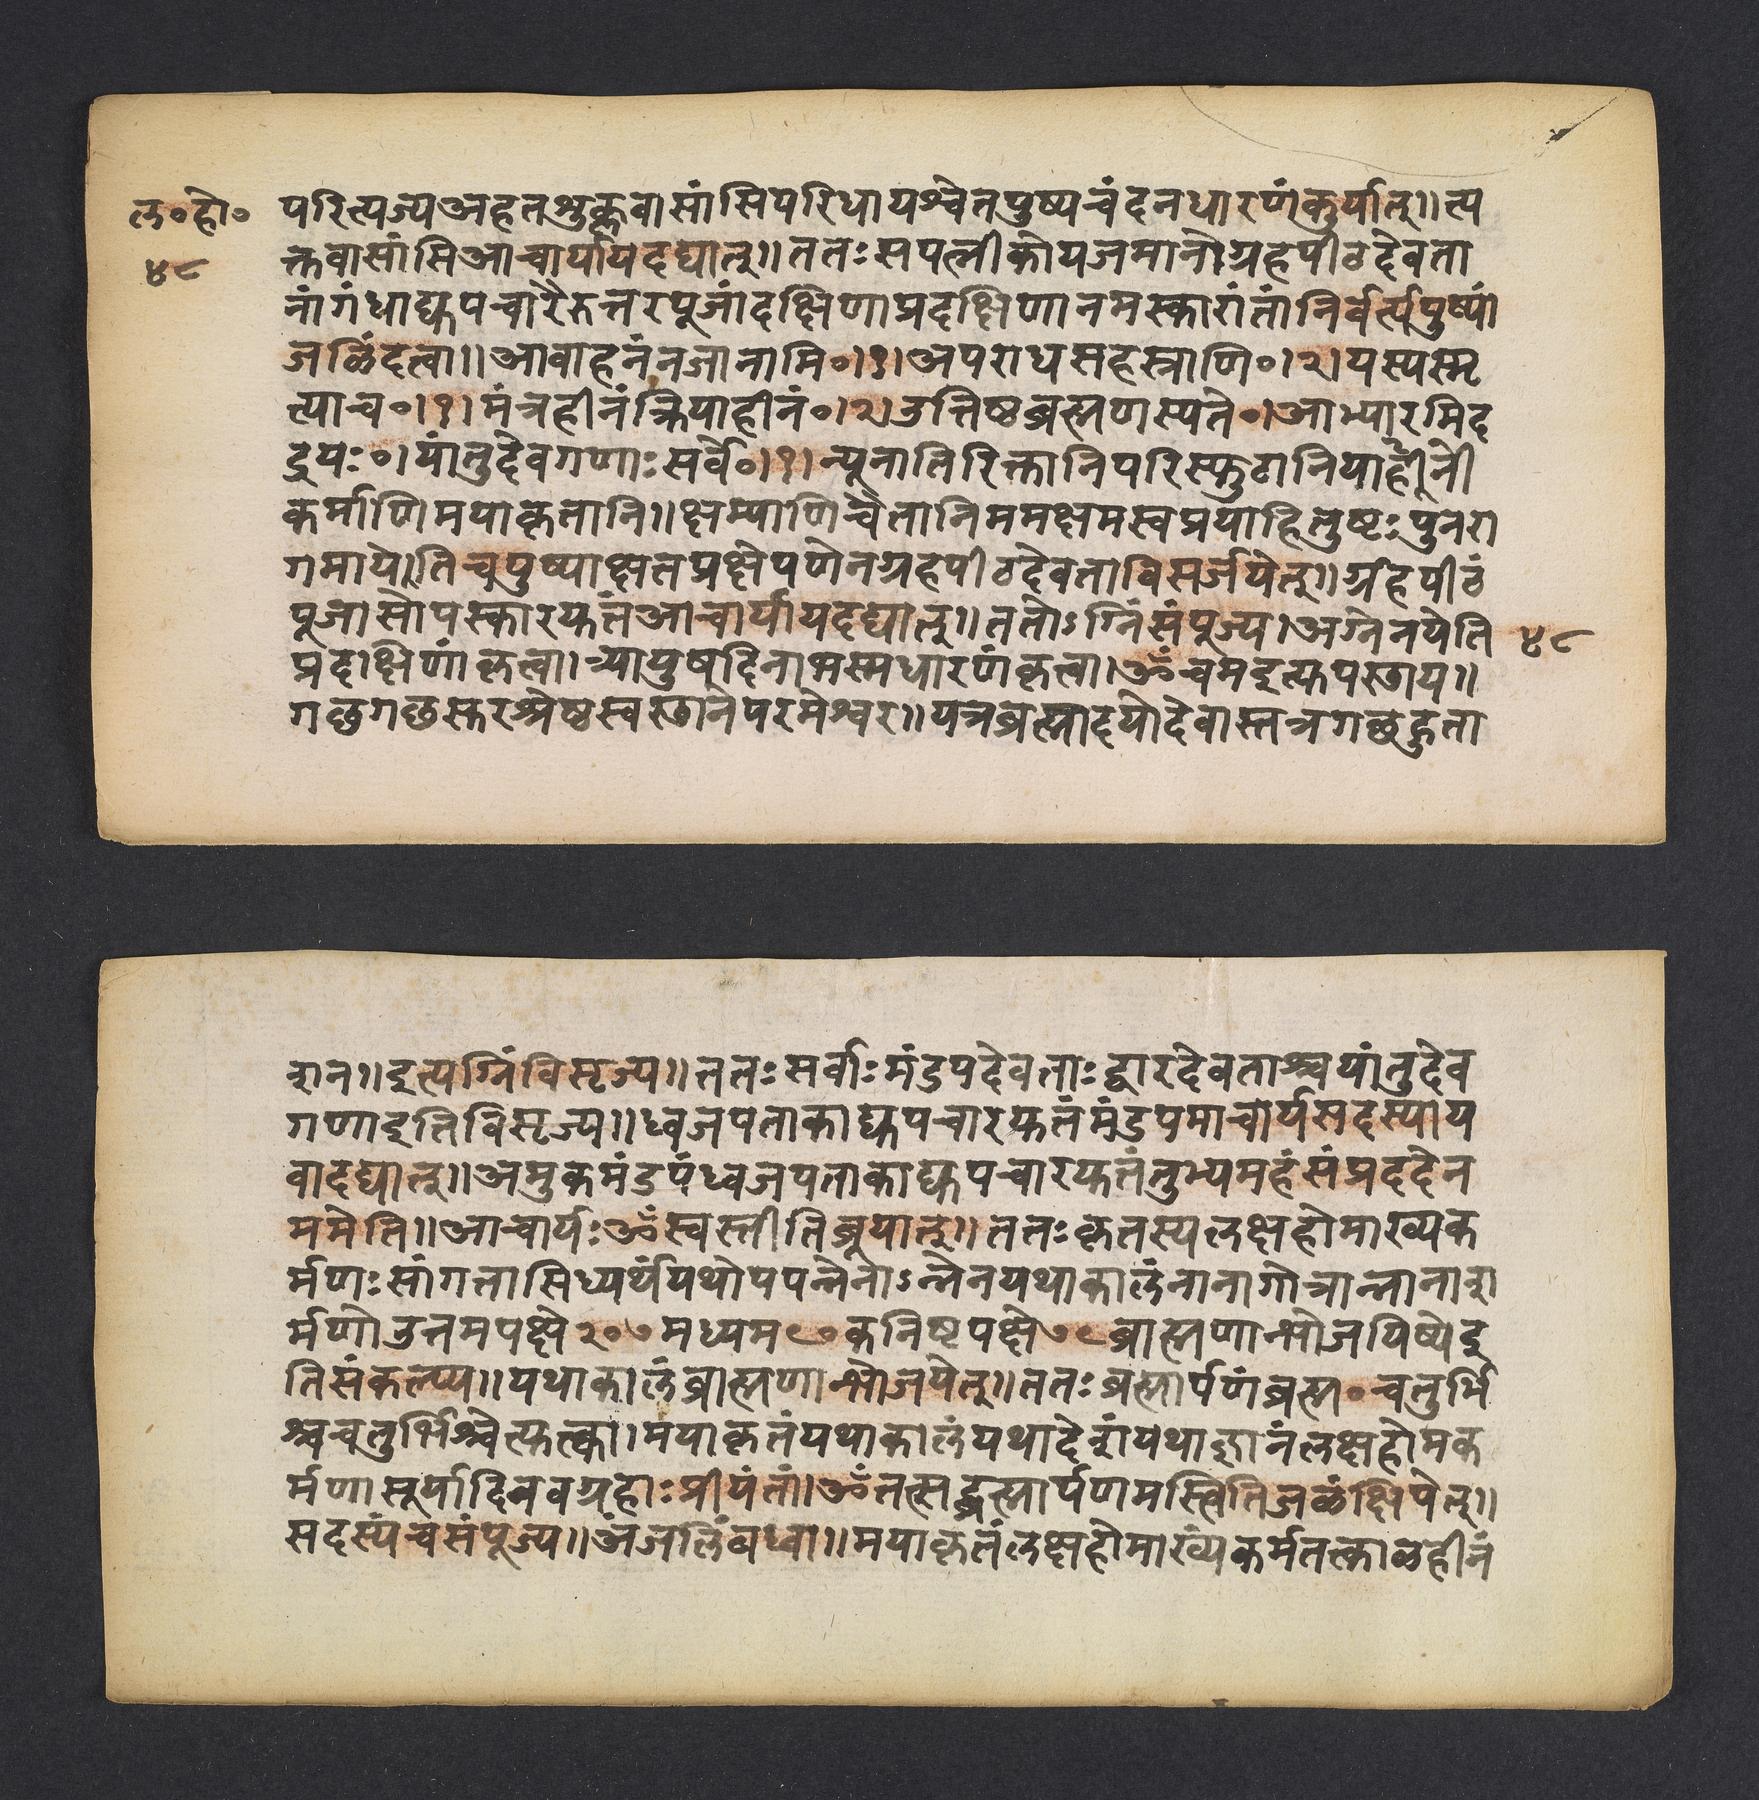 ल०हो०
४८
परित्यज्यअहतशुक्लवासांसिपरिधायश्वेतपुष्पचंदनधारणंकुर्यात्॥त्य
क्तवासांसिआचार्यायदद्यात्॥ततःसपत्नीकोयजमानोग्रहपीठदेवता
नांगंधाद्युपचारैरुत्तरपूजांदक्षिणाप्रदक्षिणानमस्कारांतांनिर्वर्त्यपुष्पां
जळिंदत्वा॥आवाहनंनजानामि०।१।अपराधसहस्त्राणि०।२।यस्यस्मृ
त्याच०।१।मंत्रहीनंक्रियाहीनं०।२।उत्तिष्ठब्रह्मणस्पते०।आभ्यारमिद
द्रयः०।यांतुदेवगणाःसर्वे०।१।न्यूनातिरिक्तानिपरिस्फुटानियाहीनी
कर्माणिमयाकृतानि॥क्षम्याणिचैतानिममक्षमस्वप्रयाहितुष्टःपुनरा
गमाये।तिचपुष्पाक्षतप्रक्षेपणेनग्रहपीठदेवताविसर्जयेत्॥ग्रहपीठं
पूजासोपस्कारयुतंआचार्यायदद्यात्॥ततोऽग्निंसंपूज्य।अग्नेनयेति
४८
प्रदक्षिणांकृत्वा।त्र्यायुषदिनाभस्मधारणंकृत्वा।ॐचमइत्युपस्छाय॥
गछगछसुरश्रेष्ठस्वस्छानेपरमेश्वर॥यत्रब्रह्मादयोदेवास्तत्रगछहुता
शन॥इत्यग्निंविसृज्य॥ततःसर्वाःमंडपदेवताःद्वारदेवताश्चयांतुदेव
गणाइतिविसृज्य॥ध्वजपताकाद्युपचारयुतंमंडपमाचार्यसदस्याय
वादद्यात्॥अमुकमंडपंध्वजपताकाद्युपचारयुतंतुभ्यमहंसंप्रददेन
ममेति॥आचार्यःॐस्वस्तीतिब्रूयात्॥ततःकृतस्यलक्षहोमाख्यक
र्मणःसांगतासिध्यर्थंयथोपपन्नेनाऽन्नेनयथाकालंनानागोत्रान्नानाश
र्मणोउत्तमपक्षे२०७मध्यम९०कनिष्टपक्षे७९ब्राह्मणान्भोजयिष्येइ
तिसंकल्प्य॥यथाकालंब्राह्मणान्भोजयेत्॥ततःब्रह्मार्पणंब्रह्म०चतुर्भि
श्चचतुर्भिश्चेत्युत्का।मयाकृतंयथाकालंयथादेशंयथाज्ञानंलक्षहोमक
र्मणासूर्यादिनवग्रहाःप्रीयंतां।ॐतत्सद्ब्रह्मार्पणमस्त्वितिजळंक्षिपेत्॥
सदस्यंचसंपूज्य॥अंजलिंबध्वा॥मयाकृतंलक्षहोमाख्यंकर्मतत्काळहीनं